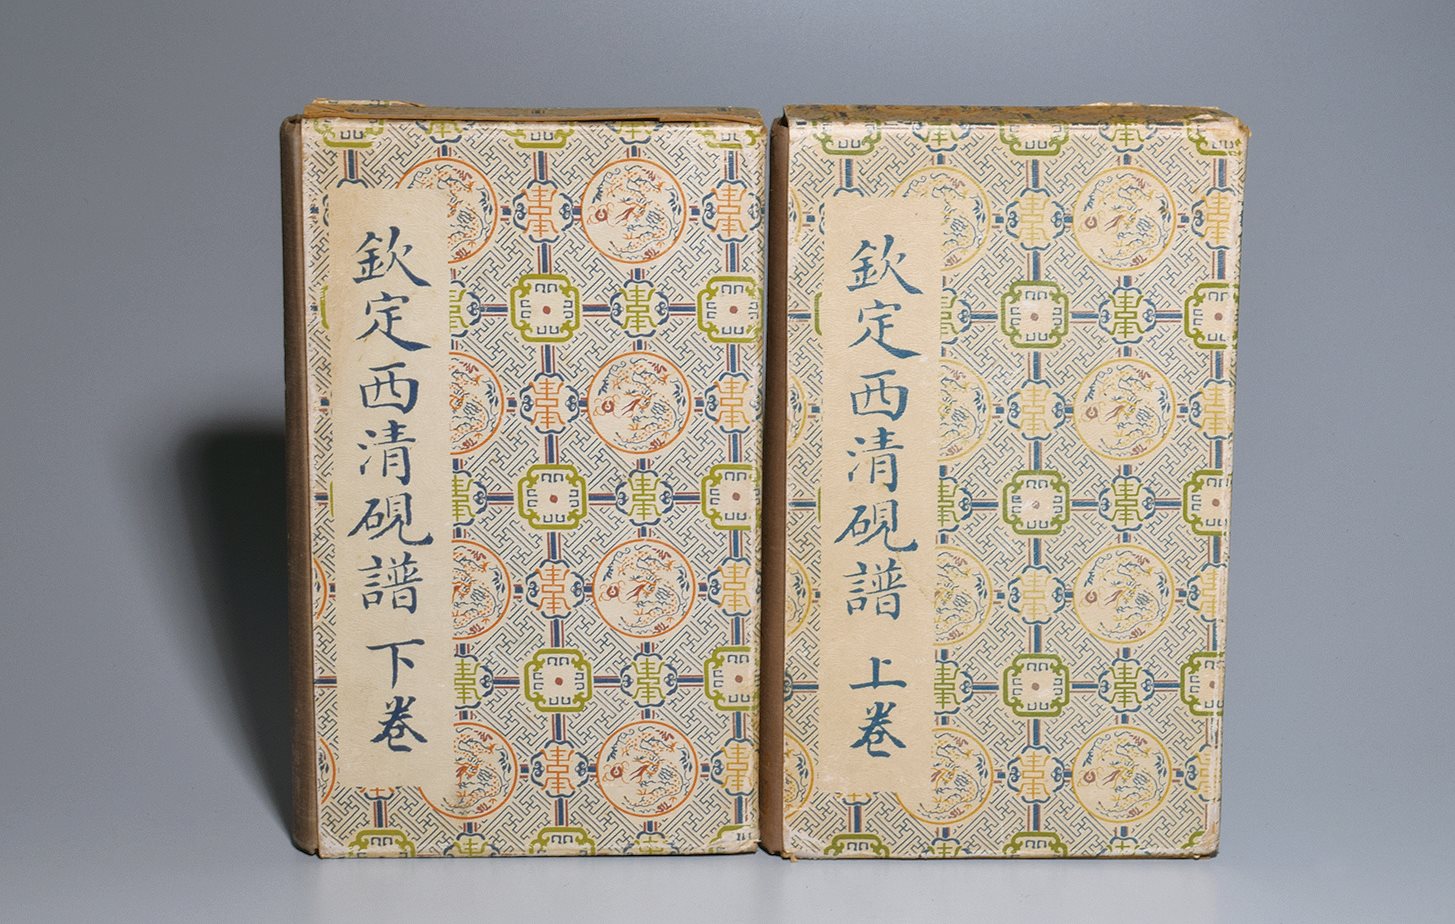 欽定西清硯譜 上卷
欽定西清硯譜 下卷